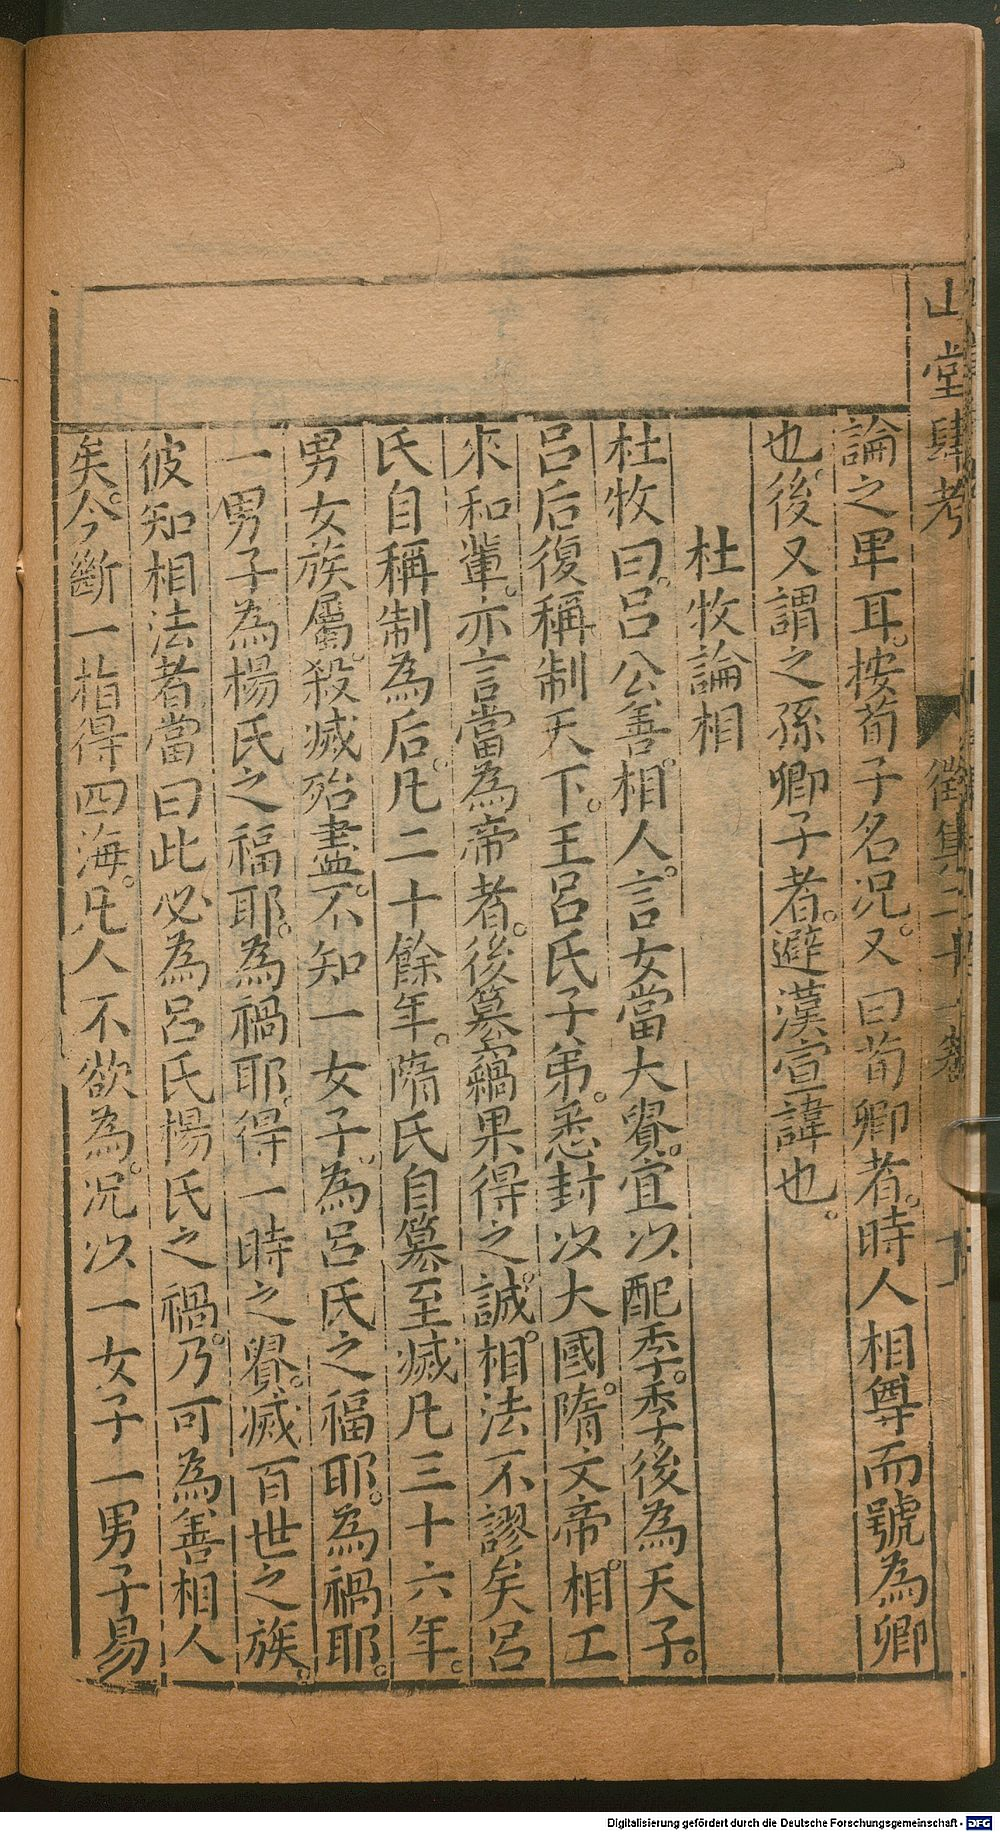 山堂肆考
徵集二十一卷
論之畢耳。按荀子名况。又曰荀卿者。時人相尊而號為卿
也。後又謂之孫卿子者。避漢宣諱也。
杜牧論相
杜牧曰。呂公善相人。言女當大貴。宜以配季。季後為天子。
呂后復稱制天下。王呂氏子弟。悉封以大國。隋文帝相工
來和輩。亦言當為帝者。後篡竊果得之。誠相法不謬矣呂
氏自稱制為后。凡二十餘年。隋氏自篡至滅。凡三十六年。
男女族屬。殺滅殆盡。不知一女子為呂氏之福耶。為禍耶。
一男子為楊氏之福耶。為禍耶。得一時之貴。滅百世之族。
彼知相法者當曰此必為呂氏楊氏之禍。乃可為善相人
矣。今斷一指得四海。凡人不欲為。况以一女子一男子易
Digitalisierung gefördert durch die Deutsche Forschungsgemeinschaft - DFG